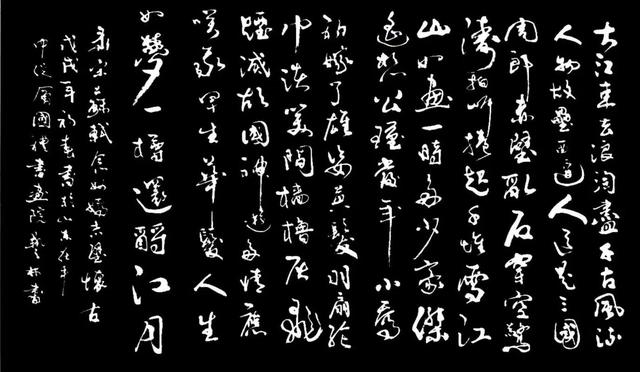 大江東去浪淘盡千古風流
人物故壘西邊人道是三國
周郎赤壁亂石穿空驚
濤拍岸捲起千堆雪江
山如畫一時多少豪傑
遙想公瑾當年小喬
初嫁了雄姿英髮羽扇綸
巾談笑間檣櫓灰飛
煙滅故國神遊多情應
笑我早生華髮人生
如夢一樽還酹江月
錄宋蘇軾念奴嬌赤壁懷古
戊戌年初春書於山東
中國禮書畫院書